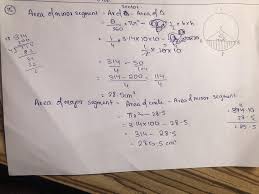 Sector
Area of minor segment = Ar of - Area of Δ
= θ/360 πr² - 1/2 × b × h
= 1/4 × 3.14 × 10 × 10 -
1/2 × 10 × 10
= 314/4 - 50
= 314 - 200 / 4 = 114 / 4
= 28.5 cm²
Area of major segment = Area of circle - Area of minor segment
= πr² - 28.5
= 3.14 × 100 - 28.5
= 314 - 28.5
= 285.5 cm²
28.5
285.5